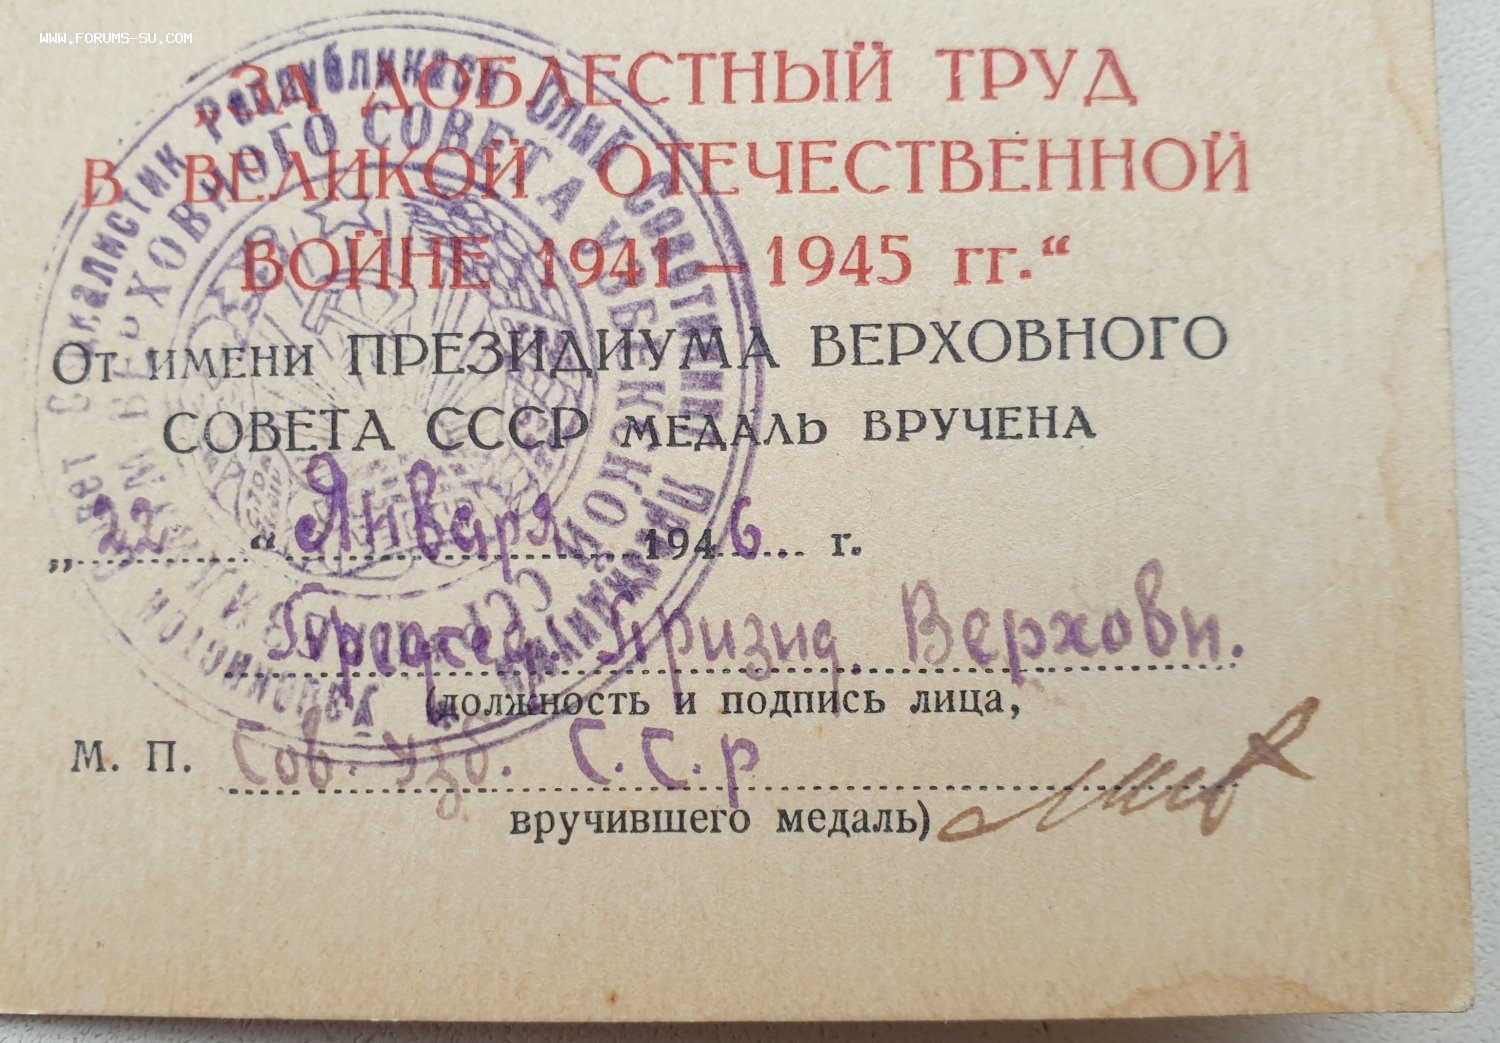 WWW.FORUMS-SU.COM
„ЗА ДОБЛЕСТНЫЙ ТРУД
В ВЕЛИКОЙ ОТЕЧЕСТВЕННОЙ
ВОЙНЕ 1941—1945 гг.“
От имени ПРЕЗИДИУМА ВЕРХОВНОГО
СОВЕТА СССР медаль вручена
„22“ Января 1946 г.
Председ. Призид. Верховн.
(должность и подпись лица,
М. П. Сов. Узб. С.С.р
вручившего медаль)
Республикаси Олий Совети
ВЕРХОВНОГО СОВЕТА УЗБЕКСКОЙ ССР